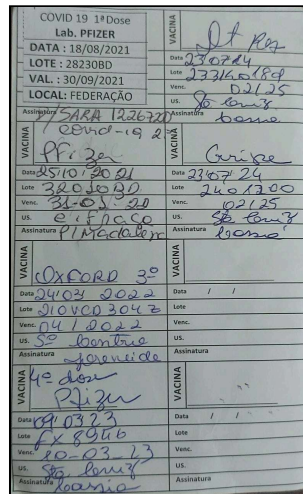 COVID 19 1ªDose
Lab. PFIZER
DATA : 18/08/2021
LOTE : 28230BD
VAL. : 30/09/2021
LOCAL: FEDERAÇÃO
Assinatura SARA 1226720
covid-19 2ª
VACINA
Pfizer
Data 25/10/2021
Lote
Venc. 31-05-22
US.
Assinatura P/Madalena
VACINA
OXFORD 3º
Data 24/02/2022
Lote 210VCD304Z
Venc. 04/2022
US. Sº
Assinatura
VACINA
4º dose
Pfizer
Data 09/03/23
Lote
Venc. 20-03-23
US. São Luiz
Assinatura Cassia
VACINA
dT
Data 23/07/24
Lote
Venc. 02/25
US. São Luiz
Assinatura Cassia
VACINA
Gripe
Data 23/07/24
Lote 2401200
Venc. 02/25
US. São Luiz
Assinatura Cassia
VACINA
Data / /
Lote
Venc.
US.
Assinatura
VACINA
Data / /
Lote
Venc.
US.
Assinatura